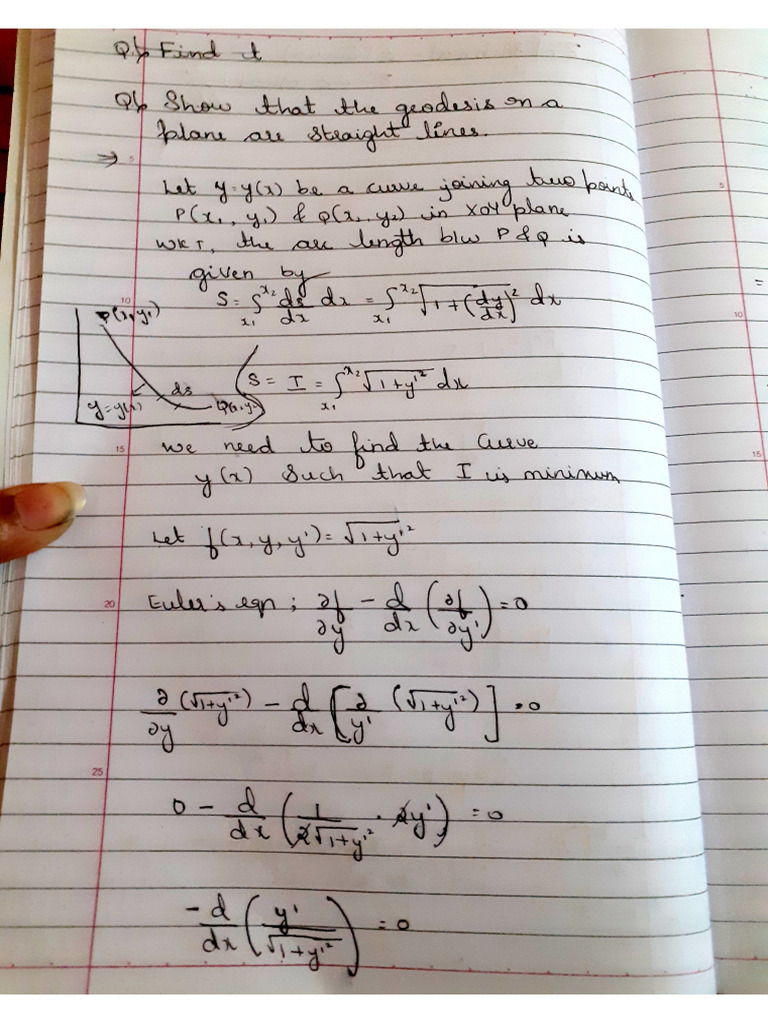 Q1) Find t
Q1) Show that the geodesis on a
plane are straight lines.
⇒
Let y=y(x) be a curve joining two points
P(x₁, y₁) & Q(x₂, y₂) in XOY plane
WKT, the arc length b/w P & Q is
given by
S = ∫_{x₁}^{x₂} ds/dx dx = ∫_{x₁}^{x₂} √(1+(dy/dx)²) dx
P(x₁,y₁)
ds
y=y(x)
Q(x₂,y₂)
S = I = ∫_{x₁}^{x₂} √(1+y'²) dx
we need to find the curve
y(x) Such that I is minimum
Let f(x, y, y') = √(1+y'²)
Euler's eqn ; ∂f/∂y - d/dx (∂f/∂y') = 0
∂/∂y (√(1+y'²)) - d/dx [∂/y' (√(1+y'²))] = 0
0 - d/dx (1/(2√(1+y'²)) · 2y') = 0
-d/dx (y'/√(1+y'²)) = 0
5
10
15
20
25
5
=
10
15